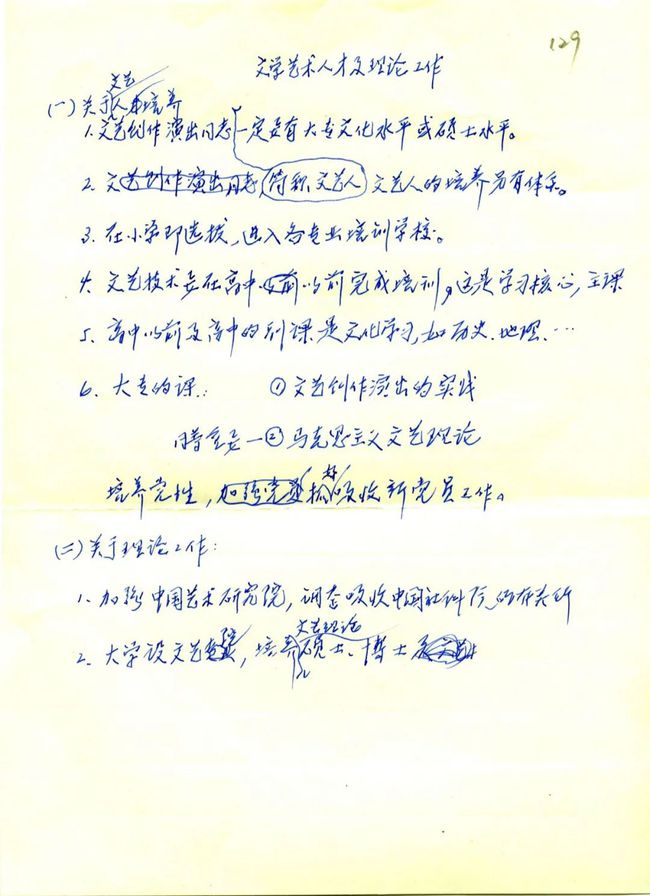 129
文学艺术人才及理论工作
文艺
(一)关于人才培养
1. 文艺创作演出同志一定要有大专文化水平或硕士水平。
2. 文艺创作演出同志(简称文艺人)文艺人的培养另有体系。
3. 在小学即选拔,进入各专业培训学校。
4. 文艺技术要在高中以前以前完成培训,这是学习核心,主课
5. 高中以前及高中的副课是文化学习,如历史、地理、…
6. 大专的课: ①文艺创作演出的实践
同等重要—②马克思主义文艺理论
培养党性,加强党员 搞好吸收新党员工作。
(二)关于理论工作:
1. 加强中国艺术研究院,调整吸收中国社科院的有关所
文艺理论
2. 大学设文艺院,培养硕士、博士